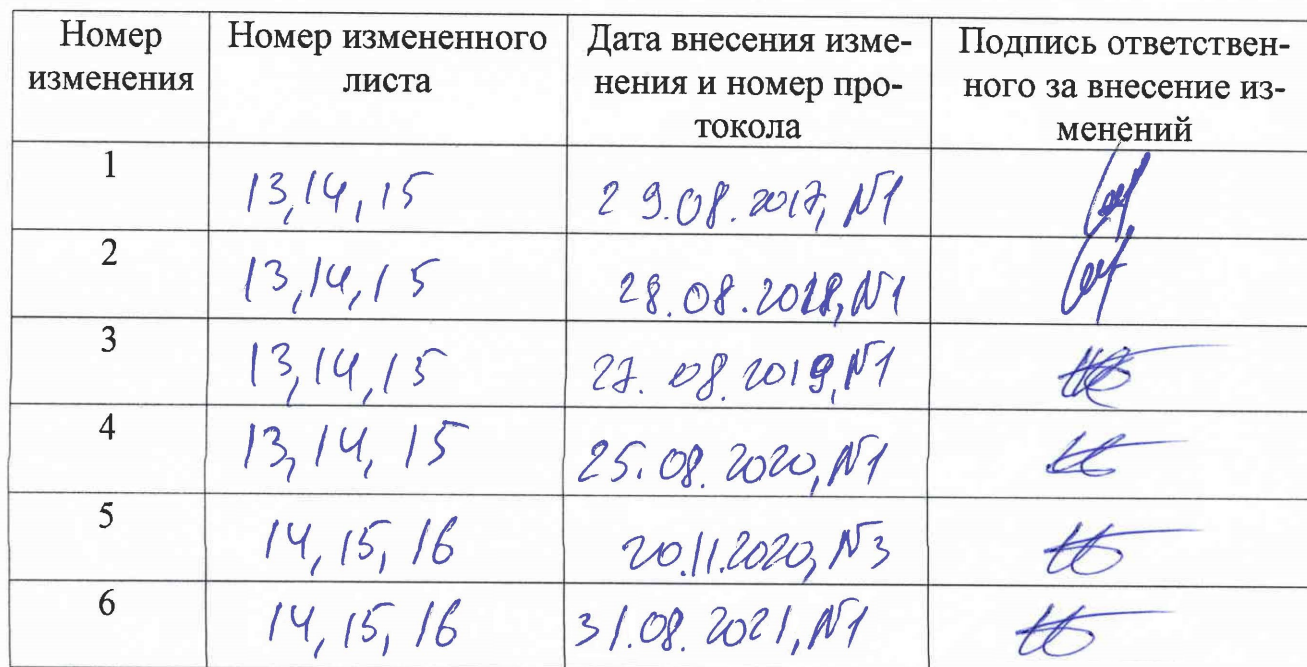 Номер изменения | Номер измененного листа | Дата внесения изме-нения и номер про-токола | Подпись ответствен-ного за внесение из-менений
1 | 13,14,15 | 29.08.2017, №1
2 | 13,14,15 | 28.08.2018, №1
3 | 13,14,15 | 27.08.2019, №1
4 | 13,14,15 | 25.08.2020, №1
5 | 14,15,16 | 20.11.2020, №3
6 | 14,15,16 | 31.08.2021, №1